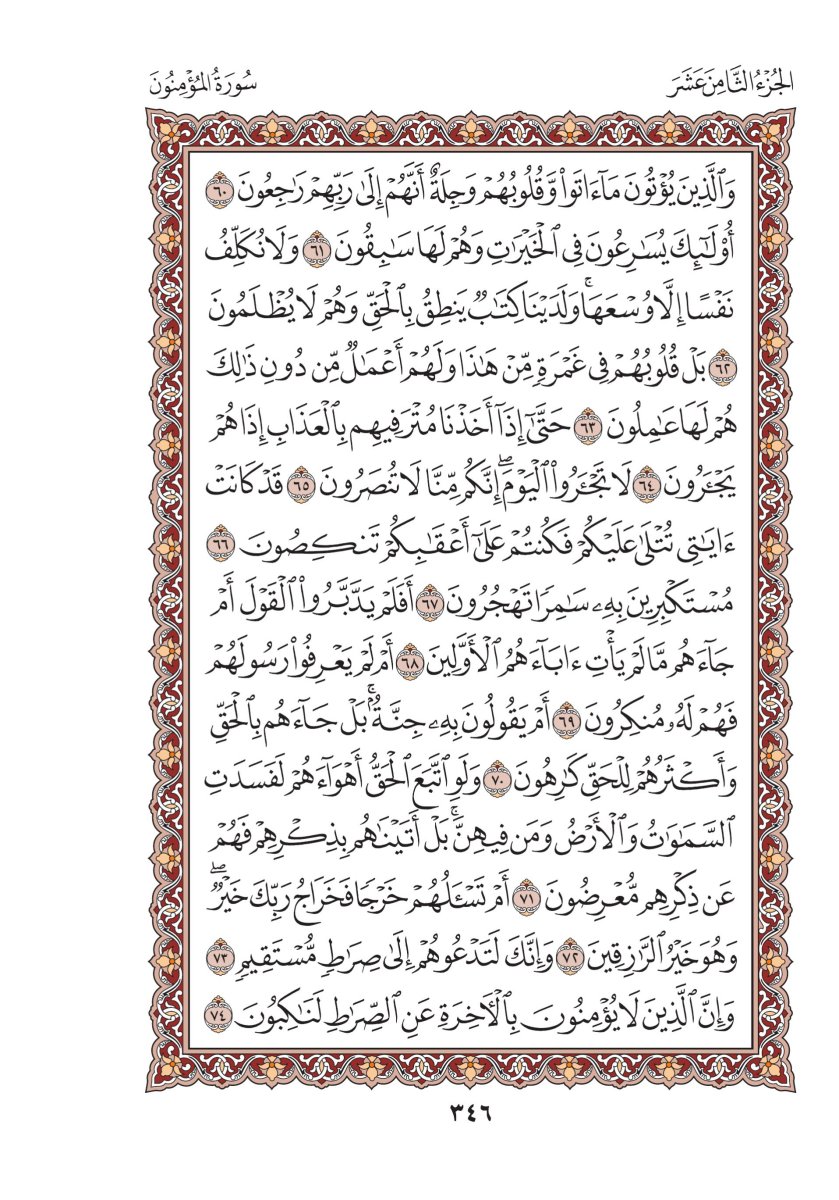 الجُزْءُ الثَّامِنَ عَشَرَ
سُورَةُ المُؤْمِنُونَ
وَٱلَّذِينَ يُؤْتُونَ مَآ ءَاتَوا۟ وَّقُلُوبُهُمْ وَجِلَةٌ أَنَّهُمْ إِلَىٰ رَبِّهِمْ رَٰجِعُونَ ٦٠
أُو۟لَـٰٓئِكَ يُسَـٰرِعُونَ فِى ٱلْخَيْرَٰتِ وَهُمْ لَهَا سَـٰبِقُونَ ٦١ وَلَا نُكَلِّفُ
نَفْسًا إِلَّا وُسْعَهَا ۚ وَلَدَيْنَا كِتَـٰبٌ يَنطِقُ بِٱلْحَقِّ وَهُمْ لَا يُظْلَمُونَ
٦٢ بَلْ قُلُوبُهُمْ فِى غَمْرَةٍ مِّنْ هَـٰذَا وَلَهُمْ أَعْمَـٰلٌ مِّن دُونِ ذَٰلِكَ
هُمْ لَهَا عَـٰمِلُونَ ٦٣ حَتَّىٰٓ إِذَآ أَخَذْنَا مُتْرَفِيهِم بِٱلْعَذَابِ إِذَا هُمْ
يَجْـَٔرُونَ ٦٤ لَا تَجْـَٔرُوا۟ ٱلْيَوْمَ ۖ إِنَّكُم مِّنَّا لَا تُنصَرُونَ ٦٥ قَدْ كَانَتْ
ءَايَـٰتِى تُتْلَىٰ عَلَيْكُمْ فَكُنتُمْ عَلَىٰٓ أَعْقَـٰبِكُمْ تَنكِصُونَ ٦٦
مُسْتَكْبِرِينَ بِهِۦ سَـٰمِرًا تَهْجُرُونَ ٦٧ أَفَلَمْ يَدَّبَّرُوا۟ ٱلْقَوْلَ أَمْ
جَآءَهُم مَّا لَمْ يَأْتِ ءَابَآءَهُمُ ٱلْأَوَّلِينَ ٦٨ أَمْ لَمْ يَعْرِفُوا۟ رَسُولَهُمْ
فَهُمْ لَهُۥ مُنكِرُونَ ٦٩ أَمْ يَقُولُونَ بِهِۦ جِنَّةٌۢ ۚ بَلْ جَآءَهُم بِٱلْحَقِّ
وَأَكْثَرُهُمْ لِلْحَقِّ كَـٰرِهُونَ ٧٠ وَلَوِ ٱتَّبَعَ ٱلْحَقُّ أَهْوَآءَهُمْ لَفَسَدَتِ
ٱلسَّمَـٰوَٰتُ وَٱلْأَرْضُ وَمَن فِيهِنَّ ۚ بَلْ أَتَيْنَـٰهُم بِذِكْرِهِمْ فَهُمْ
عَن ذِكْرِهِم مُّعْرِضُونَ ٧١ أَمْ تَسْـَٔلُهُمْ خَرْجًا فَخَرَاجُ رَبِّكَ خَيْرٌ ۖ
وَهُوَ خَيْرُ ٱلرَّٰزِقِينَ ٧٢ وَإِنَّكَ لَتَدْعُوهُمْ إِلَىٰ صِرَٰطٍ مُّسْتَقِيمٍ ٧٣
وَإِنَّ ٱلَّذِينَ لَا يُؤْمِنُونَ بِٱلْـَٔاخِرَةِ عَنِ ٱلصِّرَٰطِ لَنَـٰكِبُونَ ٧٤
٣٤٦